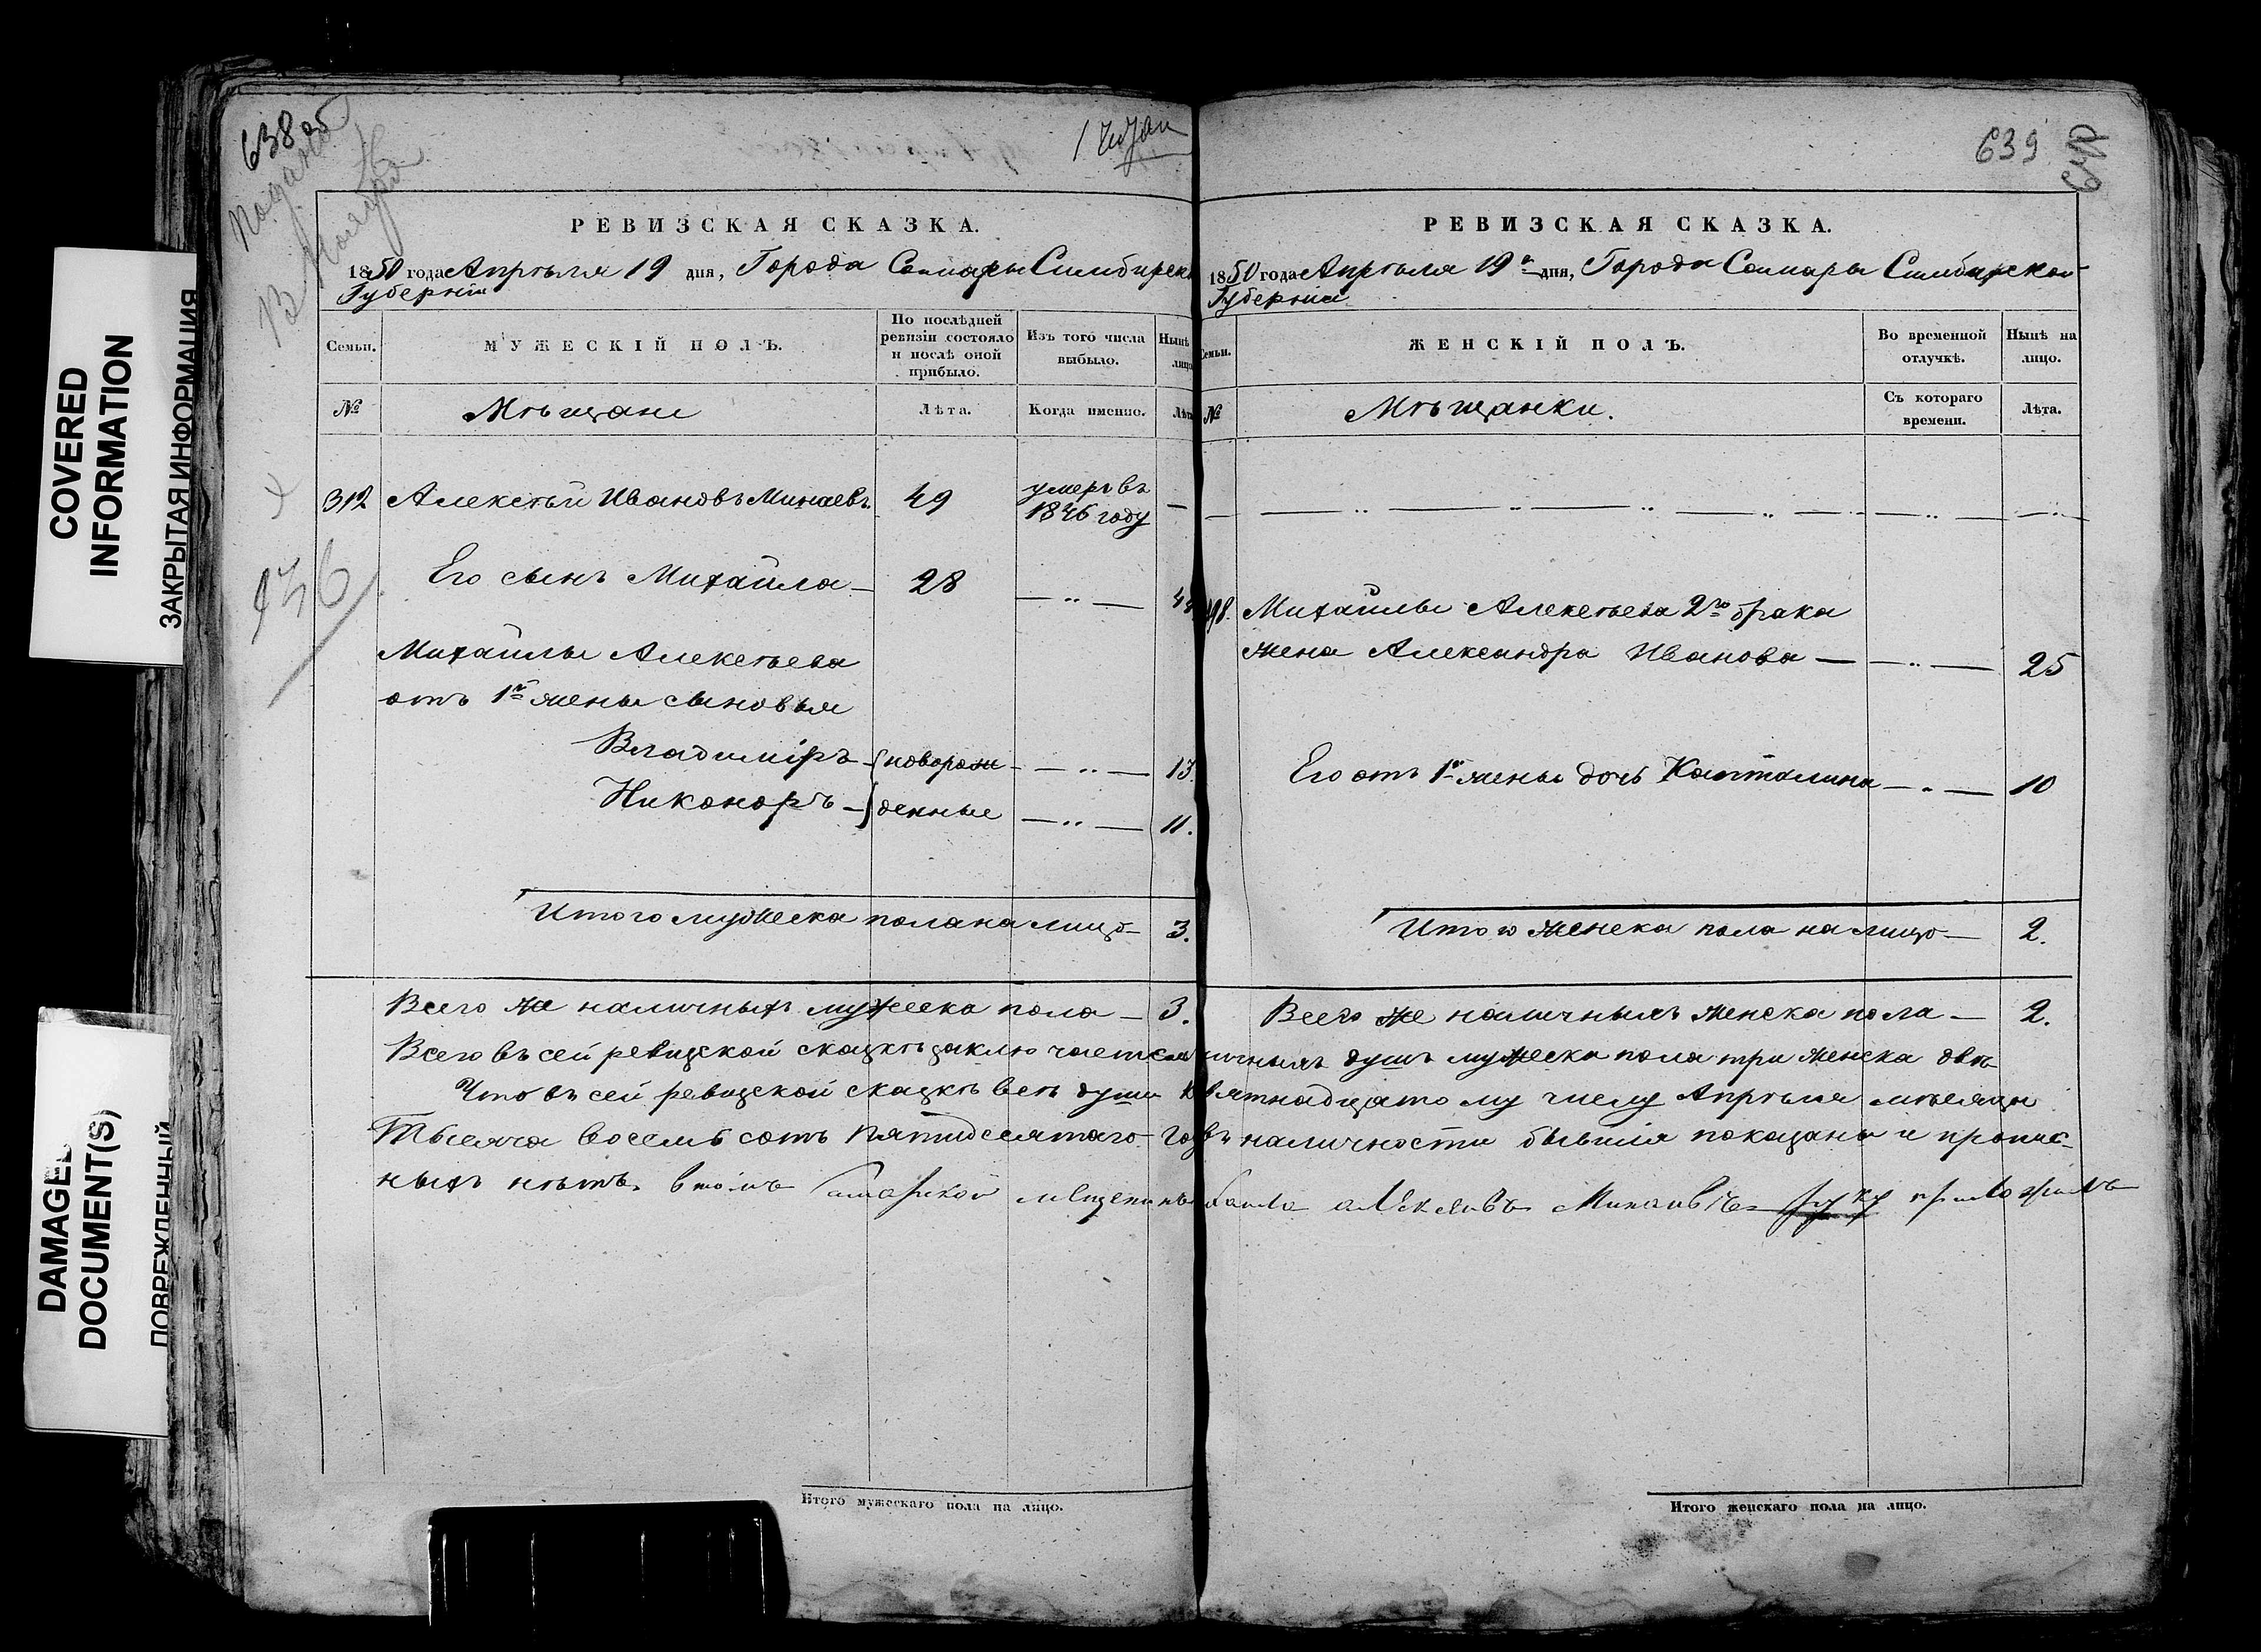 COVERED
INFORMATION
ЗАКРЫТАЯ ИНФОРМАЦИЯ
DAMAGED
DOCUMENT(S)
ПОВРЕЖДЕННЫЙ
638 об
Подана
436
РЕВИЗСКАЯ СКАЗКА.
1850 года Апрѣля 19 дня, Города Самары Симбирск
Губерніи
Семьи. МУЖЕСКІЙ ПОЛЪ. По послѣдней ревизіи состояло и послѣ оной прибыло. Изъ того числа выбыло. Нынѣ лицо
№ Мѣщане Лѣта. Когда именно. Лѣта
312 Алексѣй Ивановъ Минаевъ 49 умеръ въ 1846 году —
Его сынъ Михайла — 28 — „ —
Михайлы Алексѣева
отъ 1й жены сыновья
Владиміръ — новорож — „ — 13.
Никоноръ — денные — „ — 11.
Итого мужеска пола на лицо — 3.
Всего же наличныхъ мужеска пола — 3.
Итого мужескаго пола на лицо.
639
РЕВИЗСКАЯ СКАЗКА.
1850 года Апрѣля 19го дня, Города Самары Симбирской
Губерніи
Семьи. ЖЕНСКІЙ ПОЛЪ. Во временной отлучкѣ. Нынѣ на лицо.
№ Мѣщанки. Съ котораго времени. Лѣта.
Михайлы Алексѣева 2го брака
жена Александра Иванова — — „ — 25
Его отъ 1й жены дочь Капталина — „ — 10
Итого женска пола на лицо — 2.
Всего же наличныхъ женска пола — 2.
Всего въ сей ревизской сказкѣ заключается личныхъ душъ мужеска пола три женска двѣ
Что въ сей ревизской сказкѣ всѣ души къ вятнадцатому числу Апрѣля мѣсяца
Тысяча восемь сотъ пятидесятаго года въ наличности бывшія показаны и пропис-
ныхъ нѣтъ. въ томъ Самарской мещенинъ руку приложилъ
Итого женскаго пола на лицо.